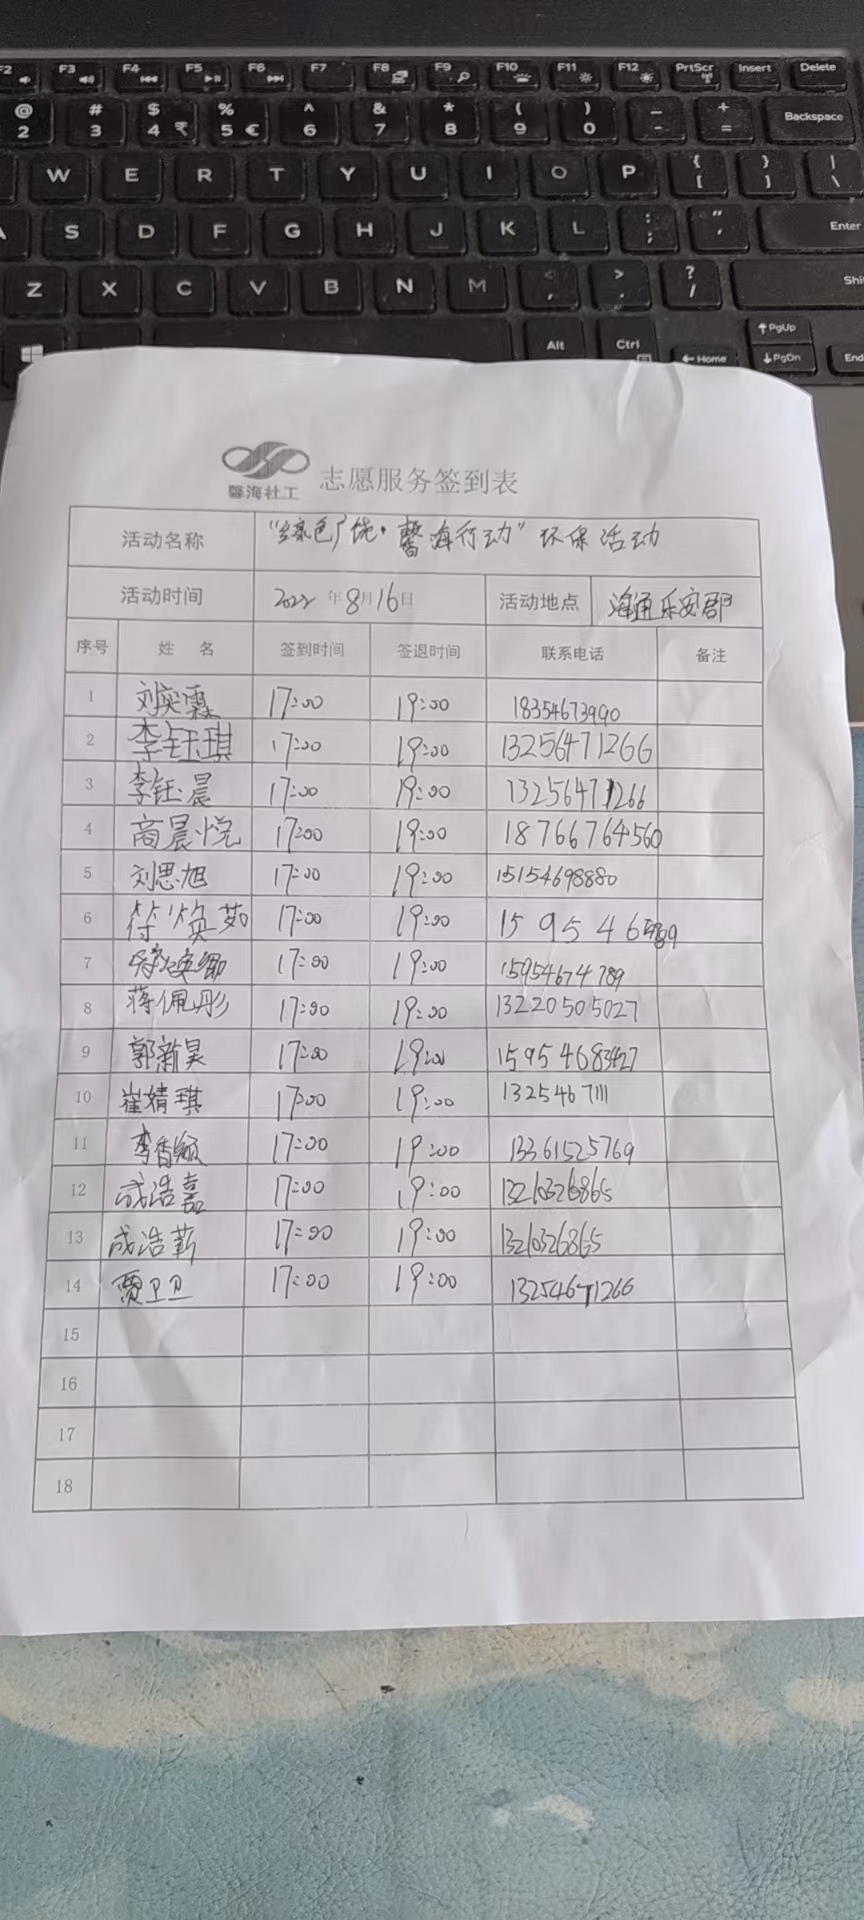 F2 F3 F4 F5 F6 F7 F8 F9 F10 F11 F12 PrtScr Insert Delete
@ # $ % ^ & * ( ) _ + Backspace
2 3 4 ₹ 5 € 6 7 8 9 0 - =
W E R T Y U I O P { [ } ] | \
A S D F G H J K L : ; " ' Enter
Z X C V B N M < , > . ? / Shi
Alt Ctrl Home PgUp PgDn End
馨海社工 志愿服务签到表
活动名称 "绿色广饶·馨海行动"环保活动
活动时间 2022年8月16日 活动地点 海通乐安郡
序号 姓 名 签到时间 签退时间 联系电话 备注
1 刘奕霖 17:00 19:00 18354673990
2 李钰琪 17:00 19:00 13256471266
3 李钰晨 17:00 19:00 13256471266
4 商晨悦 17:00 19:00 18766764560
5 刘思旭 17:00 19:00 15154698880
6 符焕茹 17:00 19:00
7 17:00 19:00 15954674789
8 蒋佩彤 17:00 19:00 13220505027
9 郭新昊 17:00 19:00 15954683427
10 崔婧琪 17:00 19:00 1325467111
11 李香颖 17:00 19:00 13361525769
12 成浩嘉 17:00 19:00
13 成浩薪 17:00 19:00
14 贾卫卫 17:00 19:00 13254671266
15
16
17
18